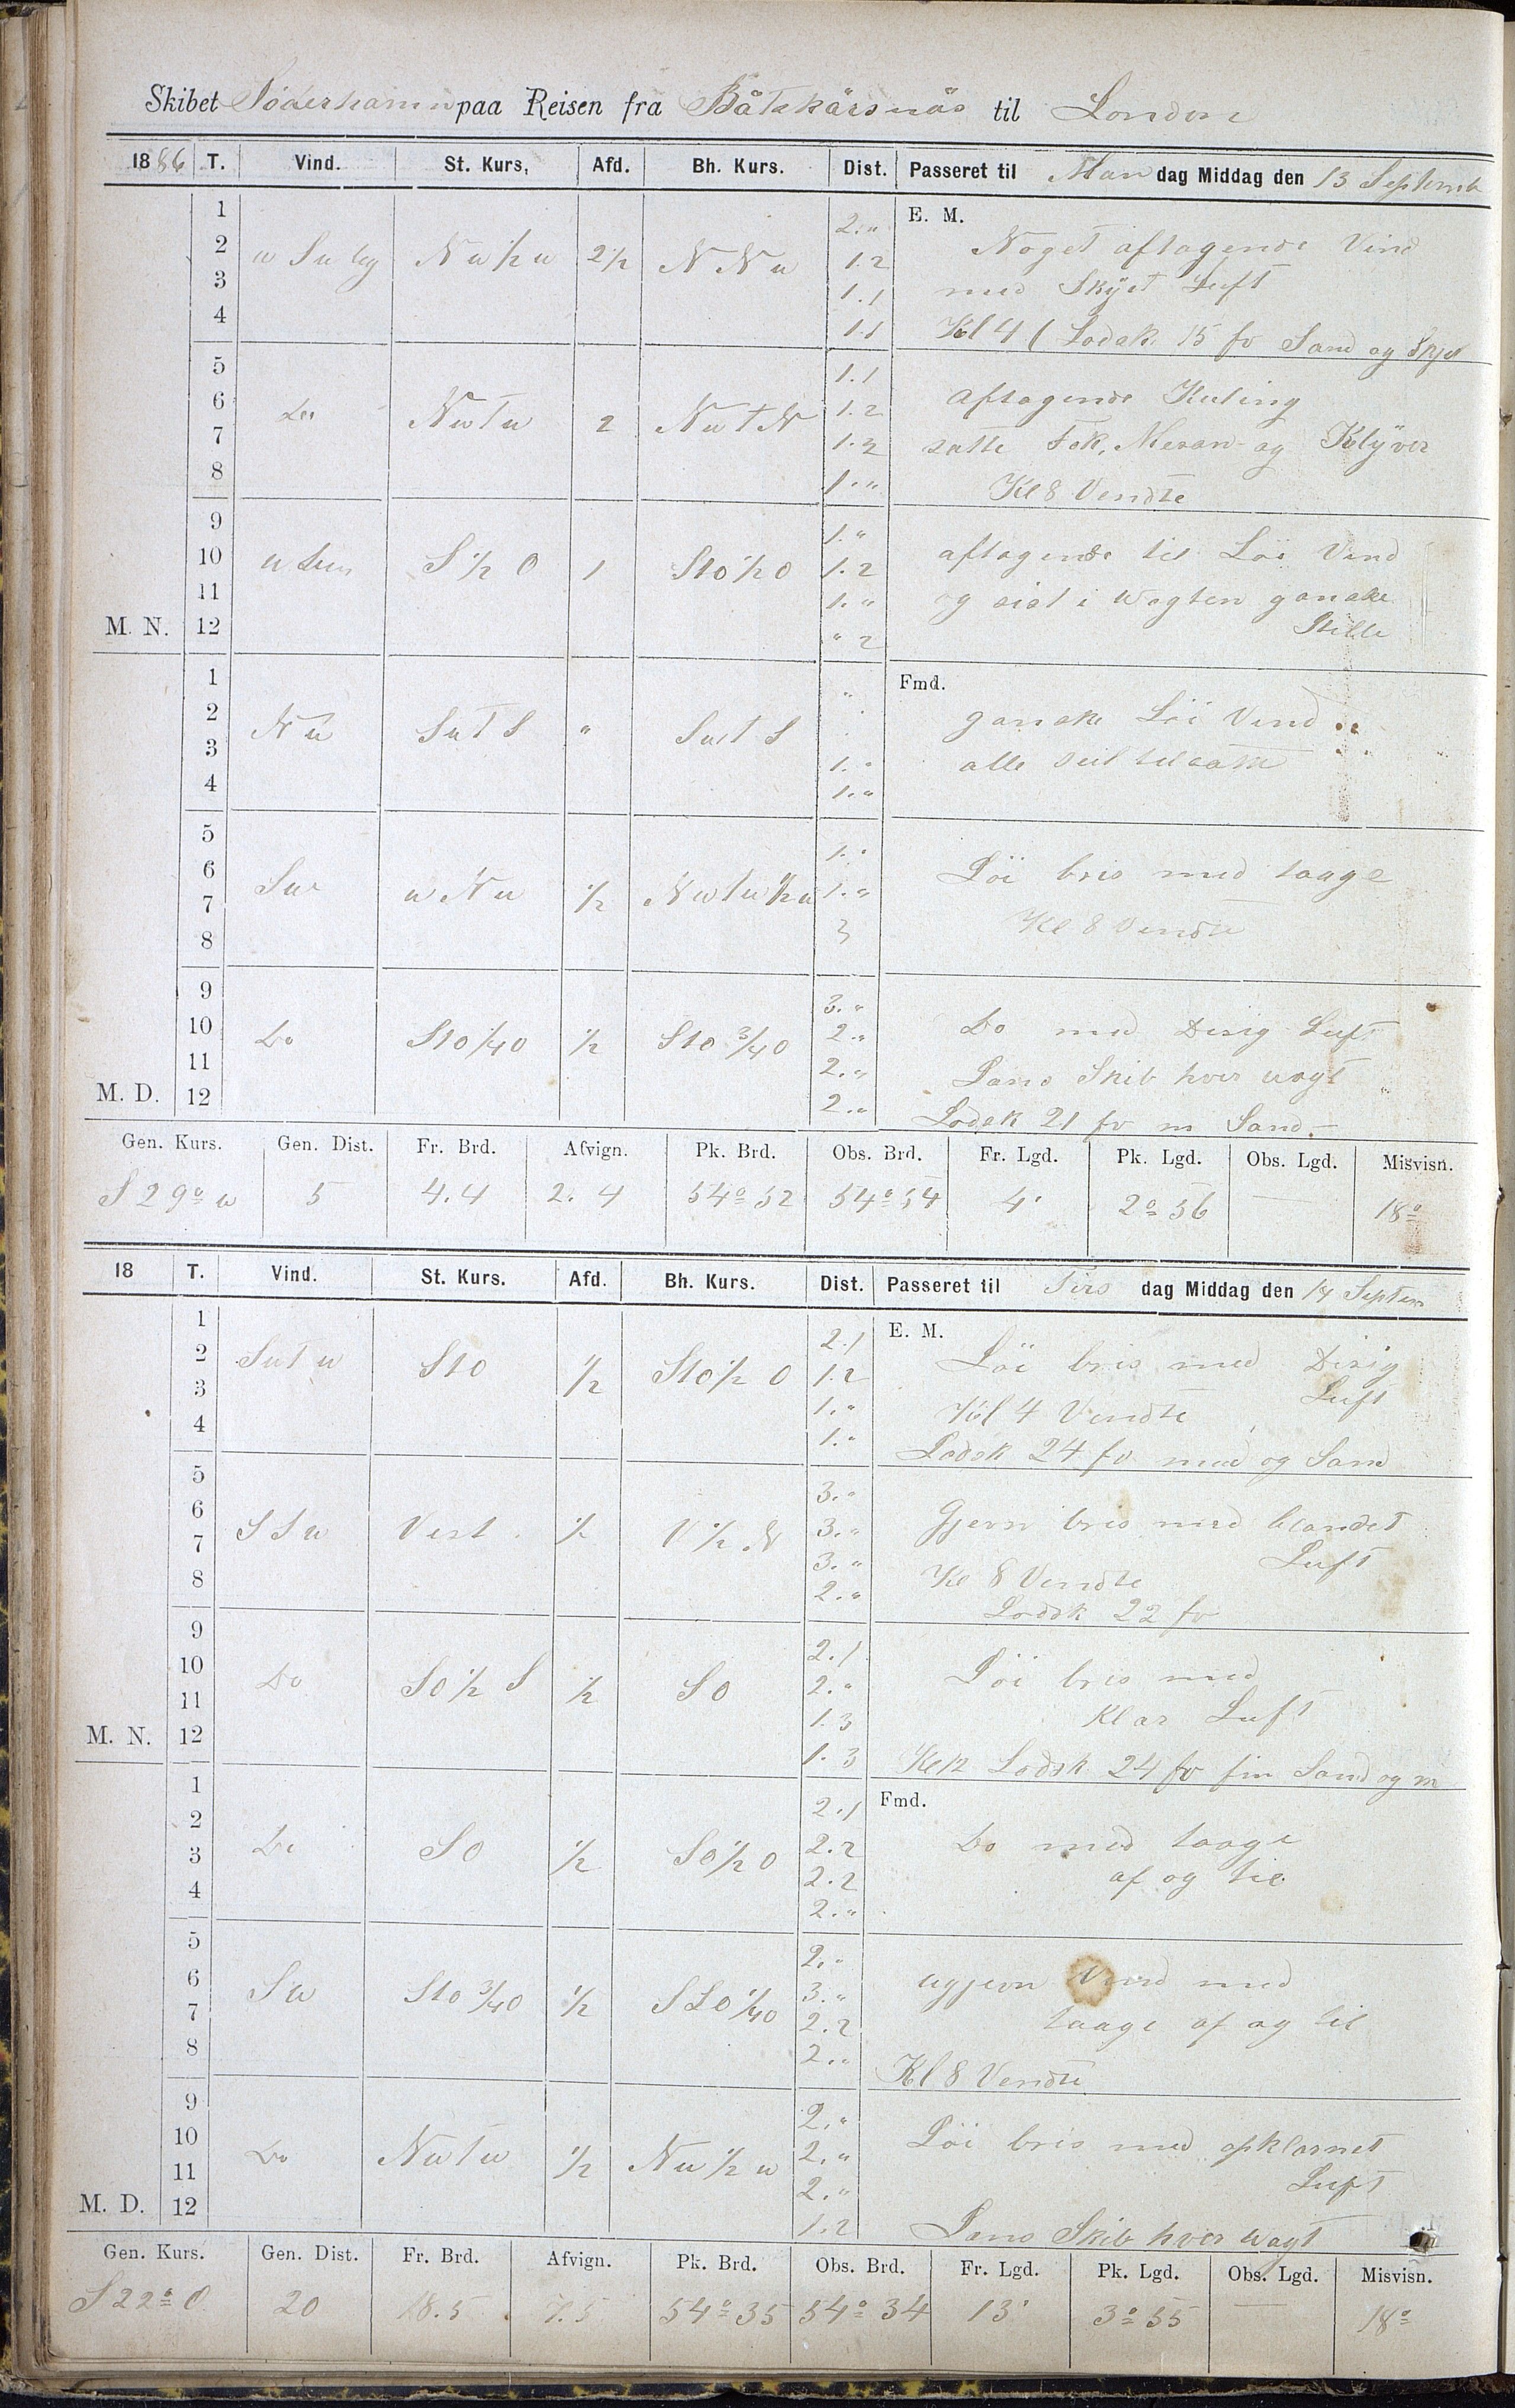 Skibet Söderhamn paa Reisen fra Båtskärsnäs til London
1886 T. Vind. St. Kurs, Afd. Bh. Kurs. Dist. Passeret til Man dag Middag den 13 Septemb
E. M.
1 2."
2 w Sw lig Nw 1/2 w 2 1/2 N Nw 1.2 Noget aftagende Vind
3 1.1 med Skyet Luft
4 1.1 Kl 4 ( Lodsk. 15 fv Sand og Skjel
5 1.1
6 Do NwTw 2 NwTN 1.2 aftagende Kuling
7 1.2 satte Fok, Mesan og Klÿver
8 1." Kl 8 Vendte
9 1."
10 S 1/2 O 1 Sto 1/2 O 1.2 aftagende til Löi Vind
11 1." og sist i Wagten ganske
M. N. 12 " 2 Stille
Fmd.
1 "
2 Nw SwT S " SwT S ganske Löi Vind
3 1." alle Seil tilsatte
4 1."
5 1."
6 Sw w Nw 1/2 NwTw 1/2 w 1." Löi bris med taage
7 3
8 Kl 8 Vendte
9 3."
10 Do Sto 1/4 O 1/2 Sto 3/4 O 2." Do med Disig Luft
11 2." Låns Skib hver wagt
M. D. 12 2." Lodsk 21 fv m Sand.-
Gen. Kurs. Gen. Dist. Fr. Brd. Afvign. Pk. Brd. Obs. Brd. Fr. Lgd. Pk. Lgd. Obs. Lgd. Misvisn.
S 29° w 5 4.4 2.4 54° 52 54° 54 4' 2° 56 — 18°
18 T. Vind. St. Kurs. Afd. Bh. Kurs. Dist. Passeret til Tirs dag Middag den 14 Septem
E. M.
1 2.1
2 SwT w Sto 1/2 Sto 1/2 O 1.2 Löi bris med Disig
3 1." Luft
4 1." Kl 4 Vendte
Lodsk 24 fv mud og Sand
5 3."
6 S Sw Vest 1/2 V 1/2 N 3." Gjevn bris med blandet
7 3." Luft
8 2." Kl 8 Vendte
Lodsk 22 fv
9 2.1
10 Do So 1/2 S 1/2 So 2." Löi bris med
11 1.3 Klar Luft
M. N. 12 1.3 Kl 12 Lodsk 24 fv fin Sand og m
Fmd.
1 2.1
2 Do So 1/2 So 1/2 O 2.2 Do med taage
3 2.2 af og til
4 2."
5 2."
6 Sw Sto 3/4 O 1/2 Sto 1/4 O 3." ugjevn Vind med
7 2.2 taage af og til
8 2." Kl 8 Vendte
9 2."
10 Do NwTw 1/2 Nw 1/2 w 2." Löi bris med opklarnet
11 2." Luft
M. D. 12 1.2 Låns Skib hver Wagt
Gen. Kurs. Gen. Dist. Fr. Brd. Afvign. Pk. Brd. Obs. Brd. Fr. Lgd. Pk. Lgd. Obs. Lgd. Misvisn.
S 22° O 20 18.5 7.5 54° 35 54° 34 13' 3° 55 — 18°